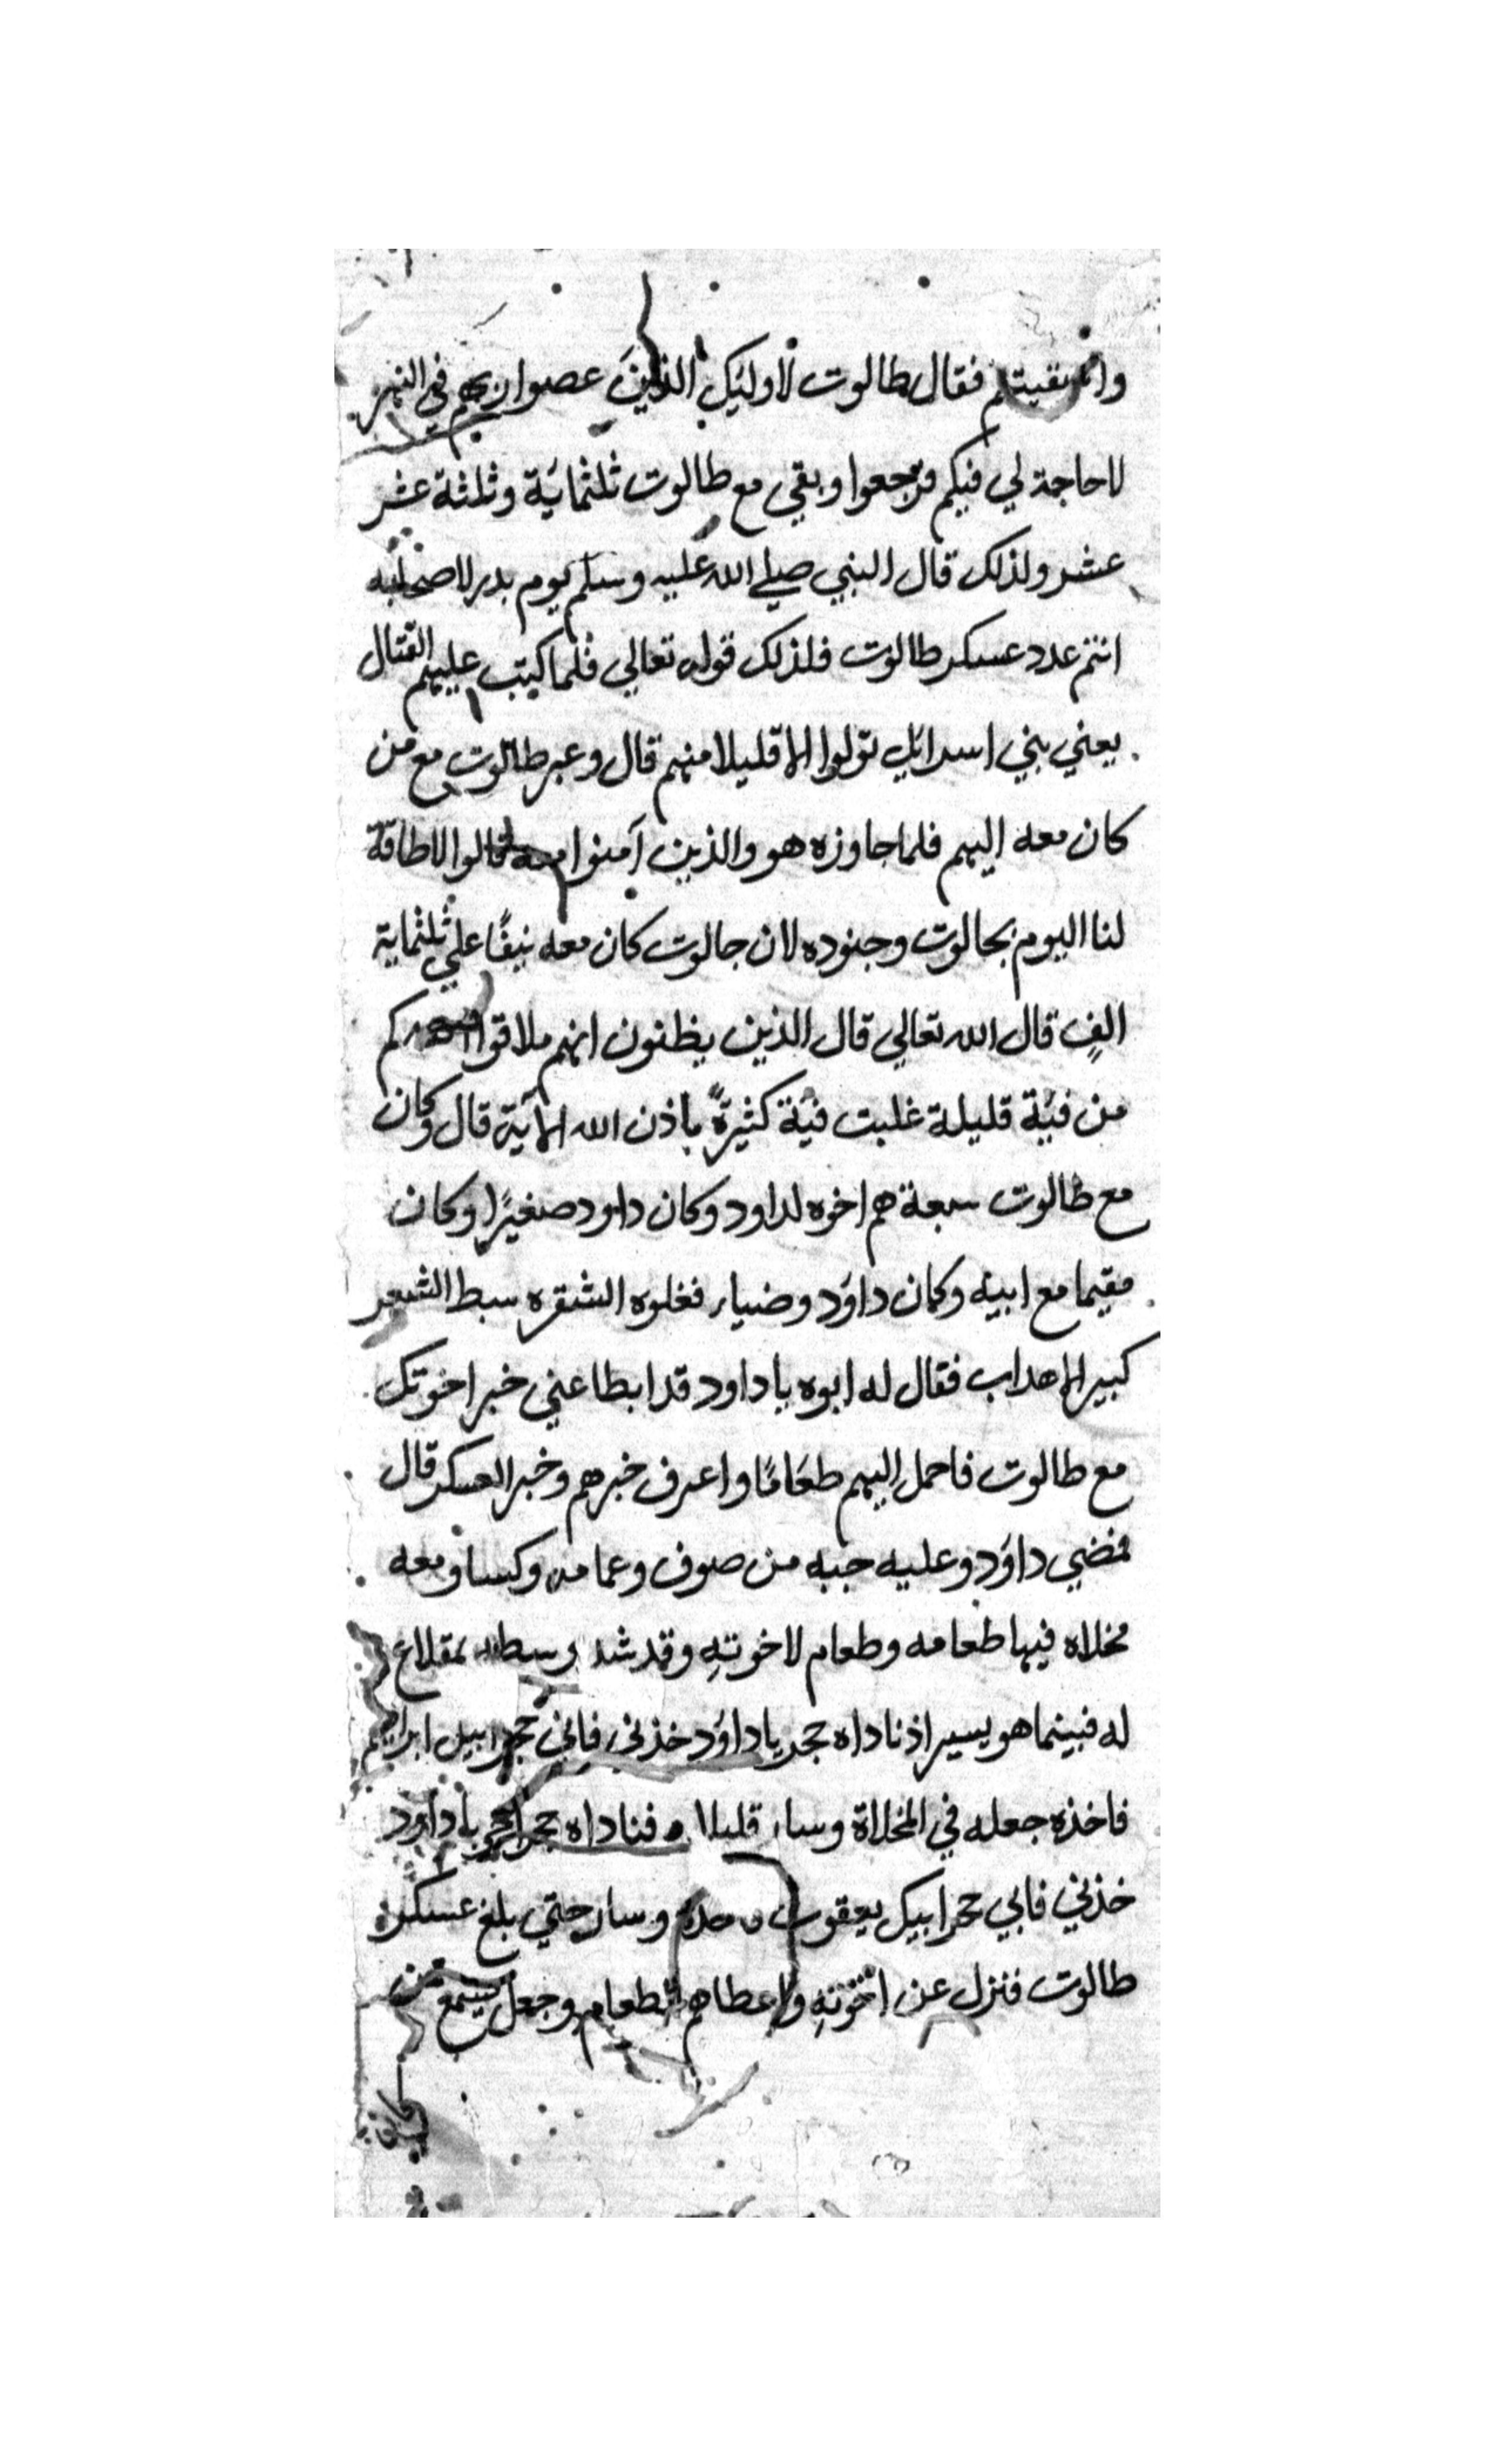 وان بقيتم فقال طالوت لاوليك الذين عصوا ربهم في النهر
لا حاجة لي فيكم فرجعوا وبقي مع طالوت ثلثمائة وثلثة عشر
عشر ولذلك قال النبي صلي الله عليه وسلم يوم بدر لاصحابه
انتم عدد عسكر طالوت فلذلك قوله تعالي فلما كتب عليهم القتال
يعني بني اسرائل تولوا الا قليلا منهم قال وعبر طالوت مع من
كان معه اليهم فلما جاوزه هو والذين آمنوا معه قالوا لا طاقة
لنا اليوم بجالوت وجنوده لان جالوت كان معه نيفًا علي ثلثماية
الفٍ قال الله تعالي قال الذين يظنون انهم ملاقوا كم
من فئة قليلة غلبت فئة كثيرةً باذن الله الآية قال وكان
مع طالوت سبعة هم اخوه لداود وكان داود صغيرًا وكان
مقيما مع ابيه وكان داوَد وضياء الشقره سبط الشعر
كبير الاهداب فقال له ابوه يا داود قد ابطا عني خبر اخوتك
مع طالوت فاحمل اليهم طعَامًا واعرف خبرهم وخبر العسكر قال
فمضي داوَد وعليه جبه من صوف وعمامه وكسا ومعه
مخلاه فيها طعامه وطعام لاخوتهِ وقد شد وسطه بمقلاع
له فبينما هو يسير اذ ناداه حجر يا داوَد خذني فاني حجر ابيك ابراهيم
فاخذه جعله في المخلاة وسار قليلا فناداه حجر اخر يا داود
خذني فاني حجر ابيك يعقوب وسار حتي بلغ عسكر
طالوت فنزل عن اخوتهِ واعطاهم الطعام وجعل يسمع من